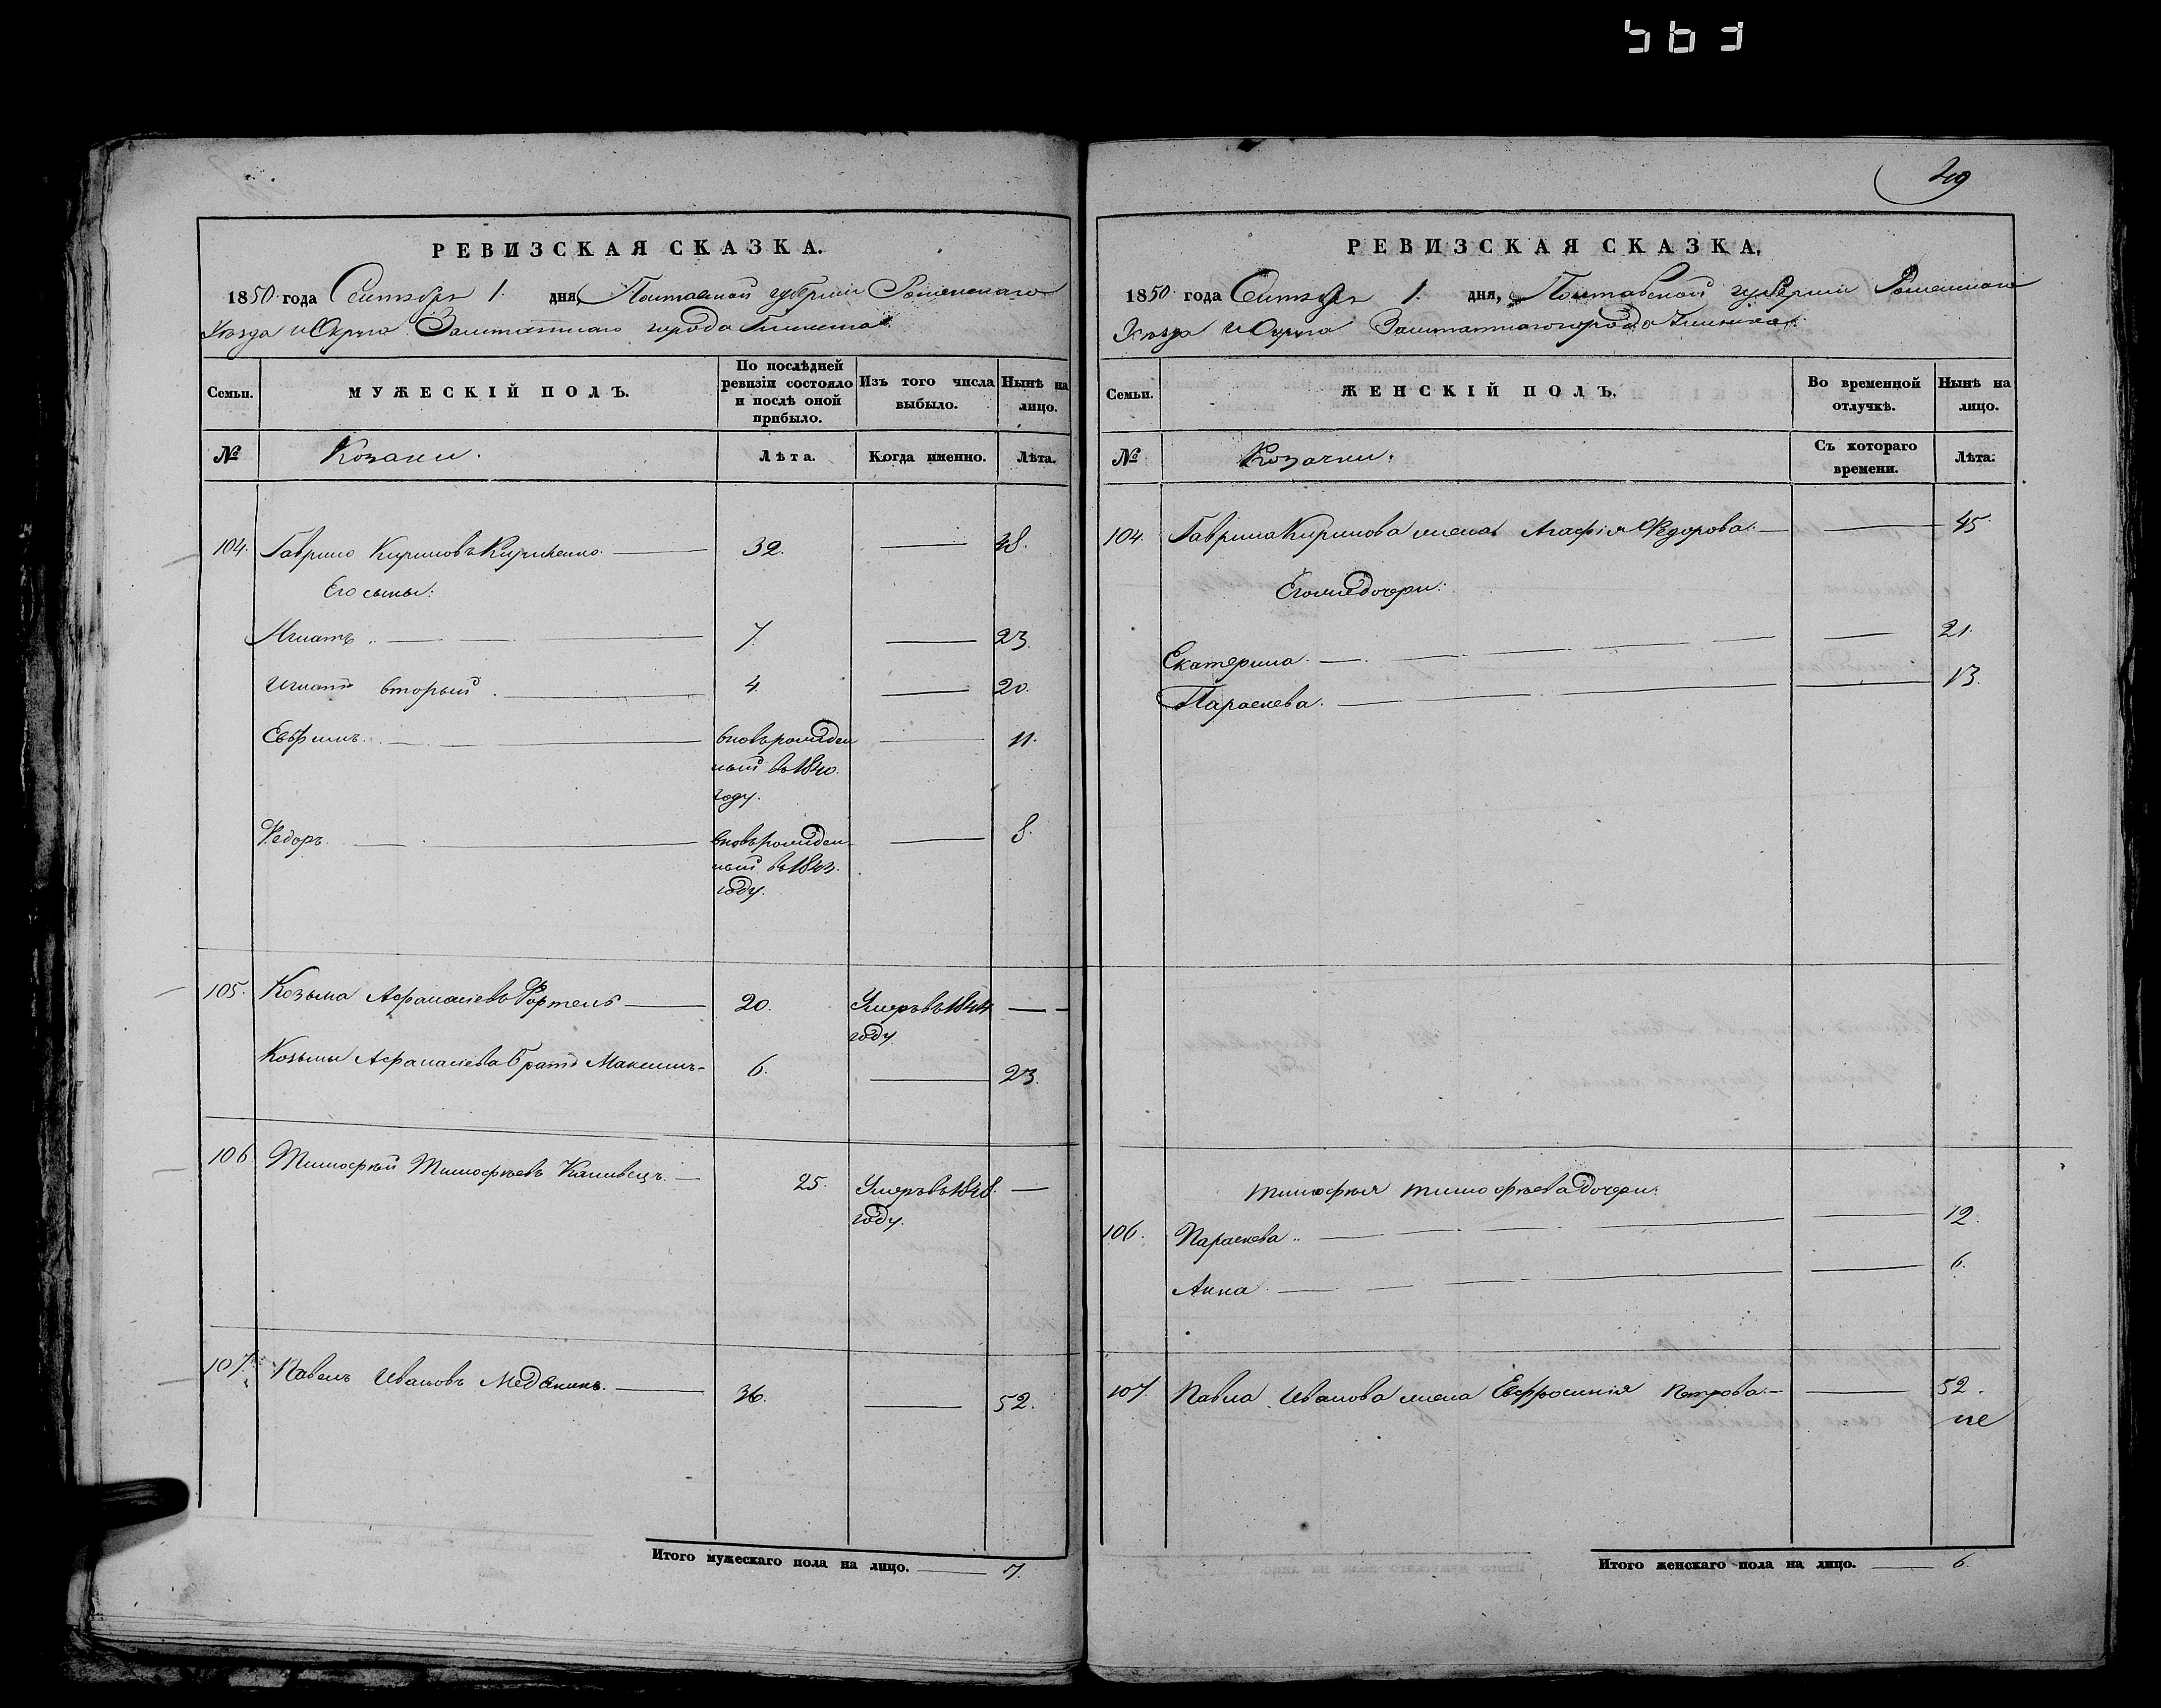 РЕВИЗСКАЯ СКАЗКА.
1850 года Сентября 1. дня, Полтавской губернiи Роменскаго
Уѣзда и Округа Заштатнаго города Глинска.
Семьи.
МУЖЕСКIЙ ПОЛЪ.
По послѣдней ревизiи состояло и послѣ оной прибыло.
Изъ того числа выбыло.
Нынѣ на лицо.
№ Козаки. Лѣта. Когда именно. Лѣта.
104. Гаврило Кириловъ Кириленко. 32. 48.
Его сыны:
Игнатъ. 7. 23.
Игнатъ вторый. 4. 20.
Евфимъ. вновьрожден 11.
ный въ 1840.
году.
Федоръ. вновьрожден 8.
ный въ 1843.
году.
105. Козьма Афанасiевъ 20. Умеръ въ 1844
году
Козьмы Афанасiева братъ Максимъ 6. 23.
106 Тимофѣй Тимофѣевъ Канивецъ. 25. Умеръ въ 1848.
году.
107. Павелъ Ивановъ 36. 52.
Итого мужескаго пола на лицо. 7.
49
РЕВИЗСКАЯ СКАЗКА.
1850 года Сентября 1. дня, Полтавской губернiи Роменскаго
Уѣзда и Округа Заштатнаго города Глинска.
Семьи.
ЖЕНСКIЙ ПОЛЪ.
Во временной отлучкѣ.
Нынѣ на лицо.
№ Козачки. Съ котораго времени. Лѣта.
104. Гаврила Кирилова жена Агафiя Федорова. 45.
Его же дочери:
Екатерина. 21.
Параскева. 13.
Тимофѣя Тимофѣева дочери:
106. Параскева. 12.
Анна. 6.
107. Павла Иванова жена Евфросинiя Петрова. 52.
Итого женскаго пола на лицо. 6.